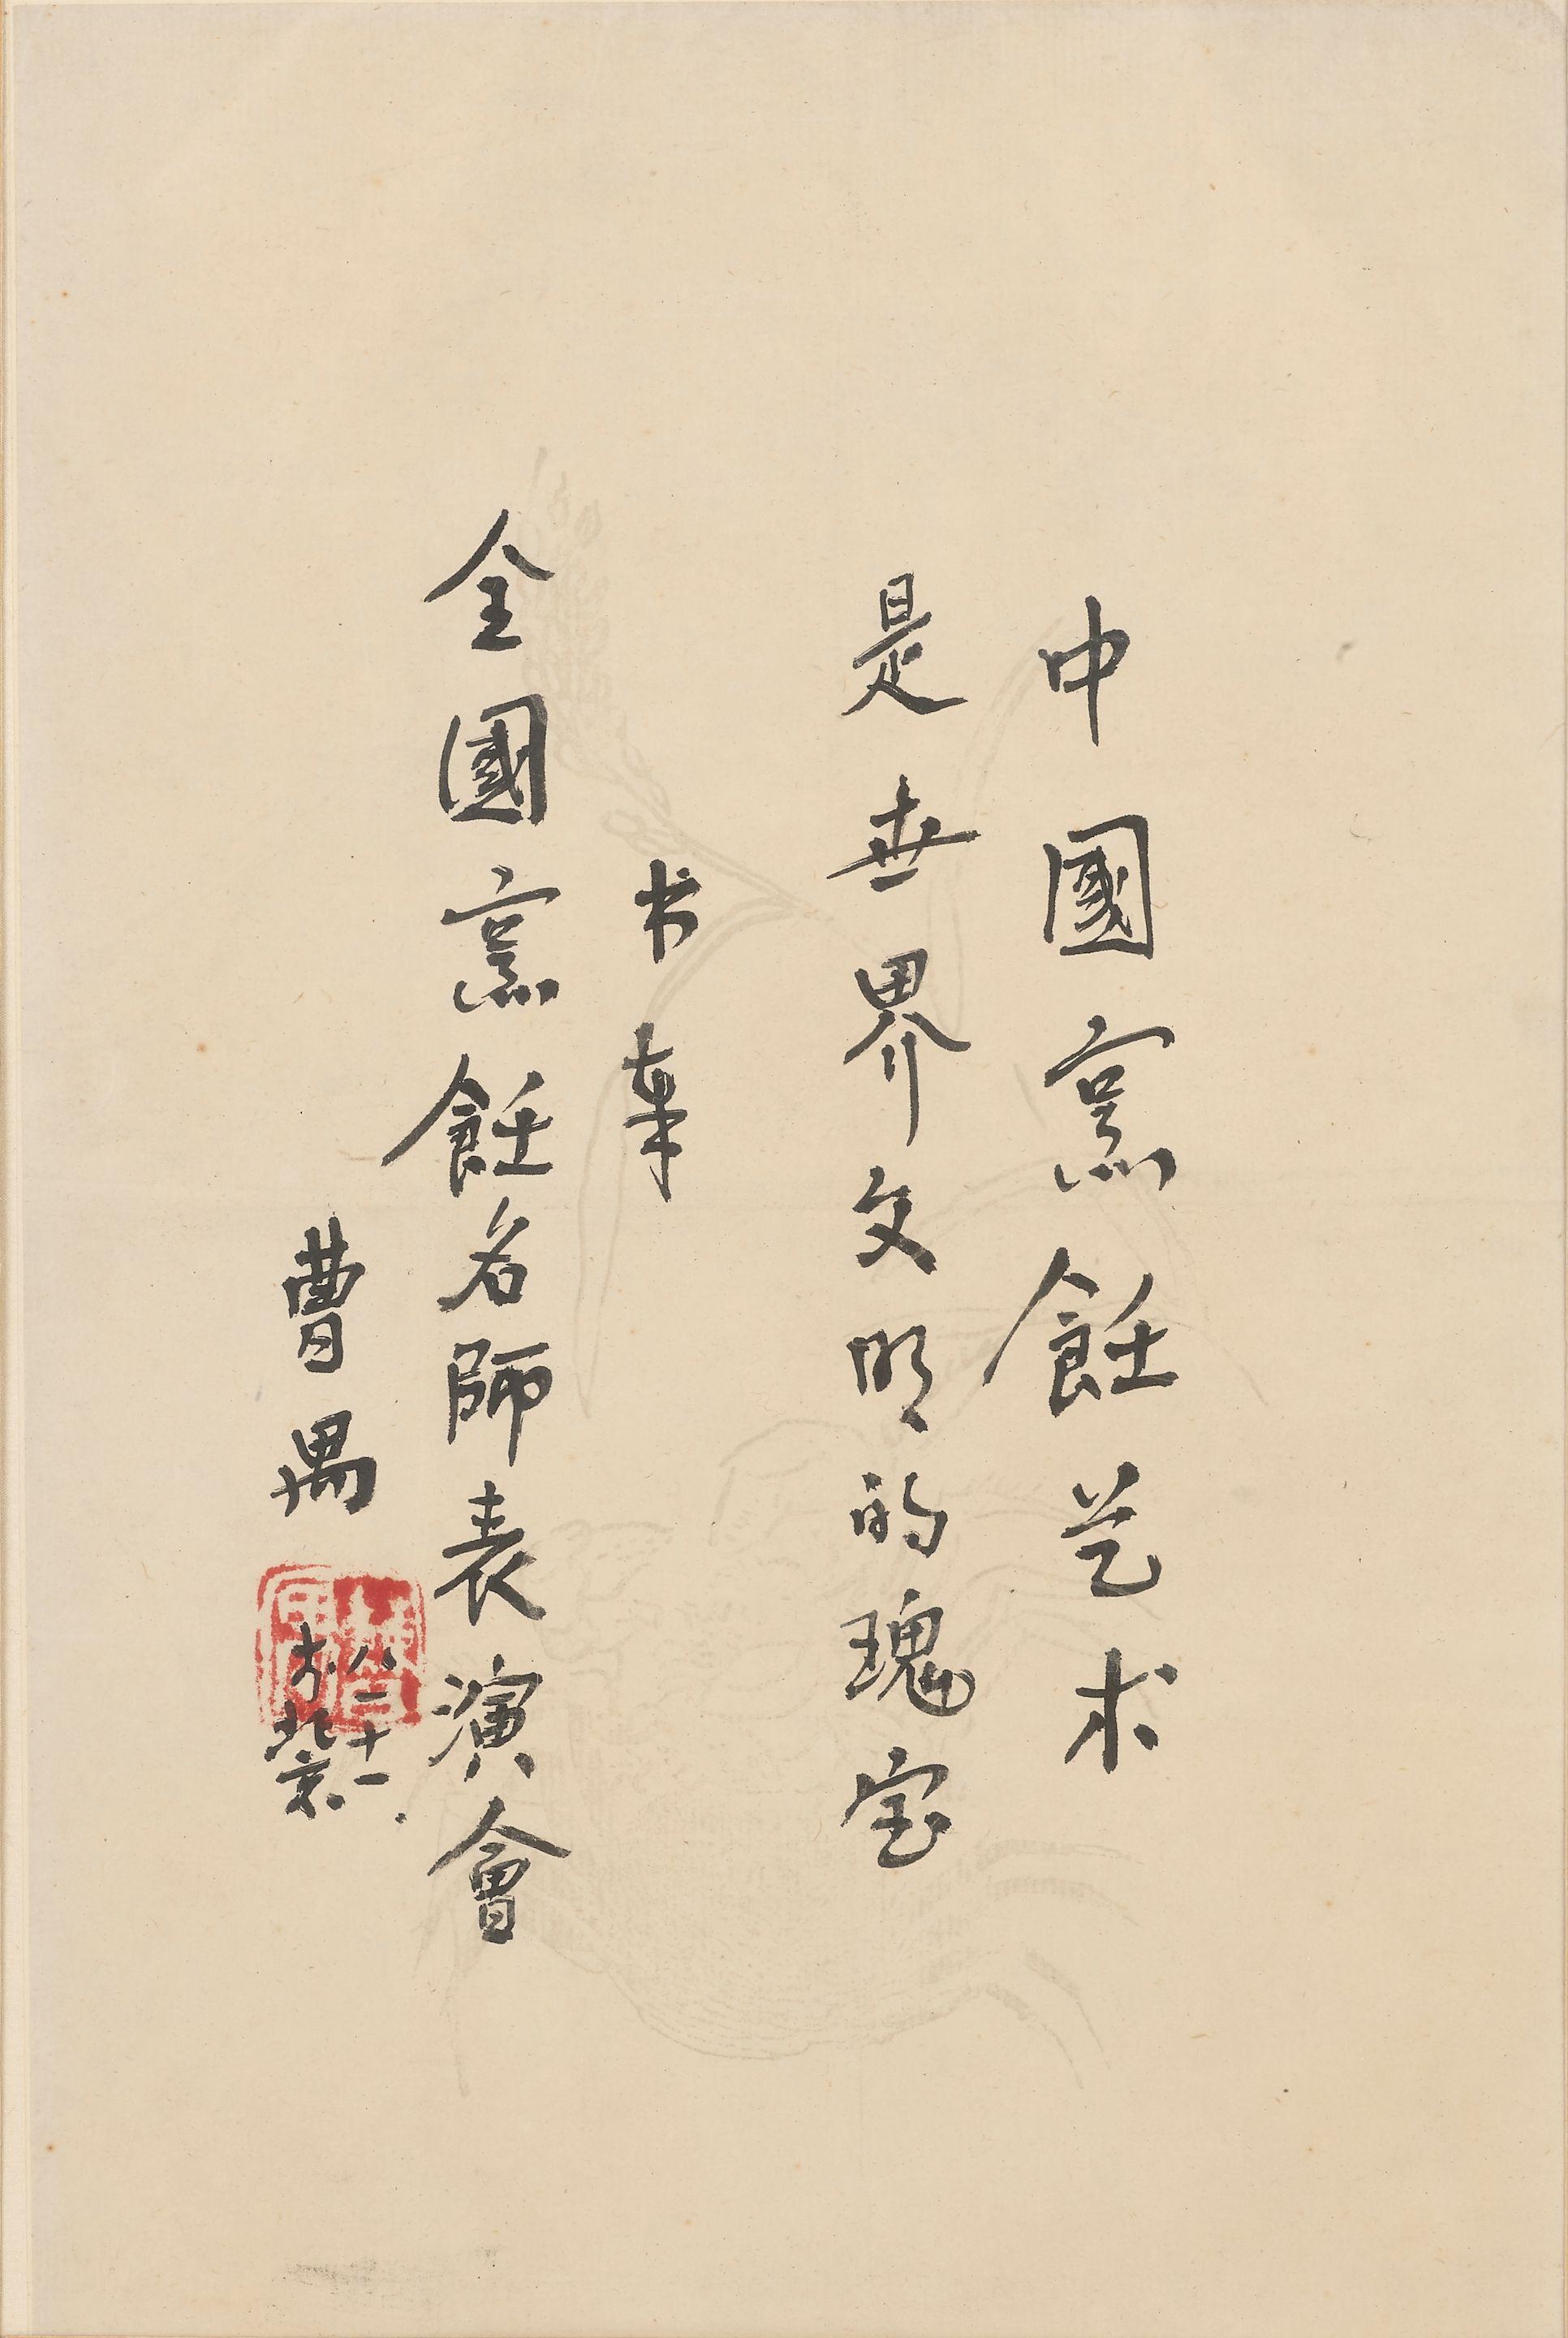 中國烹飪艺术
是世界文明的瑰宝
书奉
全國烹飪名師表演會
曹禺
八三十一
於北京